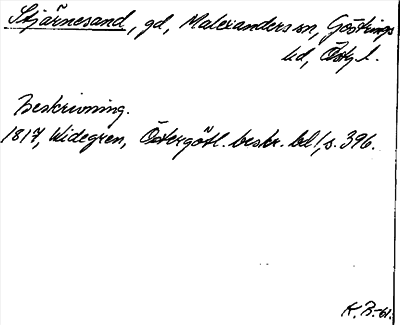 Stjärnesand, gd, Malexanders sn, Göstrings
hd, Östg. l.
Beskrivning.
1817, Widegren, Östergötl. beskr. bd 1, s. 396.
K. B. -61.